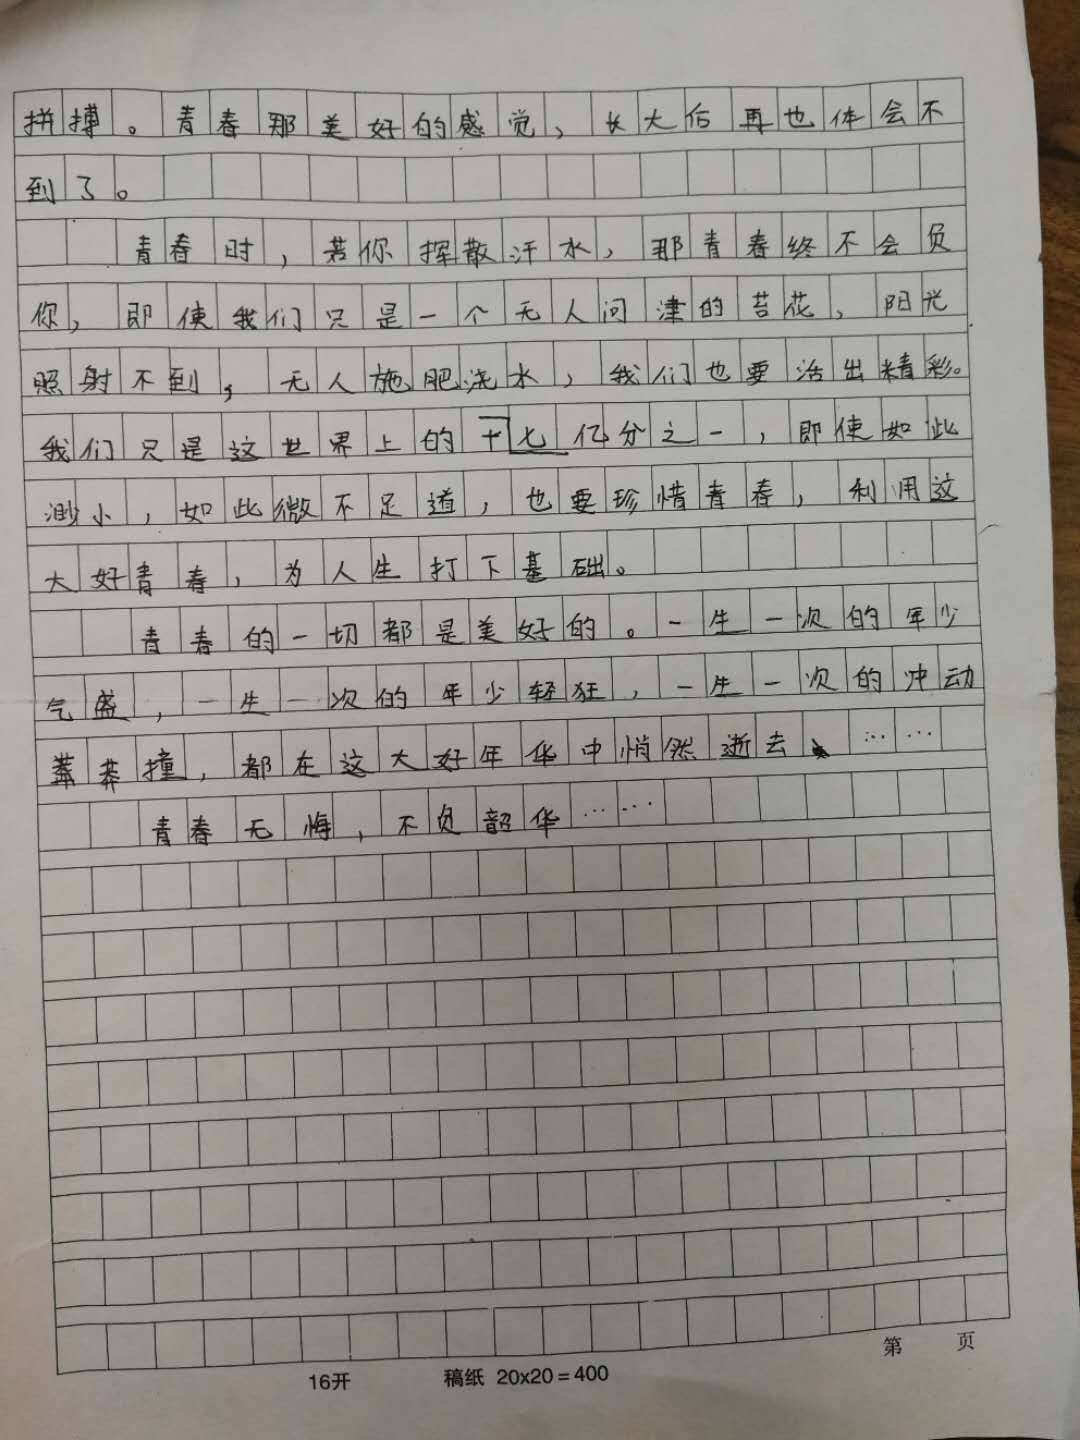 拼搏。青春那美好的感觉，长大后再也体会不
到了。
青春时，若你挥散汗水，那青春终不会负
你，即使我们只是一个无人问津的苔花，阳光
照射不到，无人施肥浇水，我们也要活出精彩。
我们只是这世界上的十七亿分之一，即使如此
渺小，如此微不足道，也要珍惜青春，利用这
大好青春，为人生打下基础。
青春的一切都是美好的。一生一次的年少
气盛，一生一次的年少轻狂，一生一次的冲动
莽撞，都在这大好年华中悄然逝去……
青春无悔，不负韶华……
第 页
16开 稿纸 20x20=400